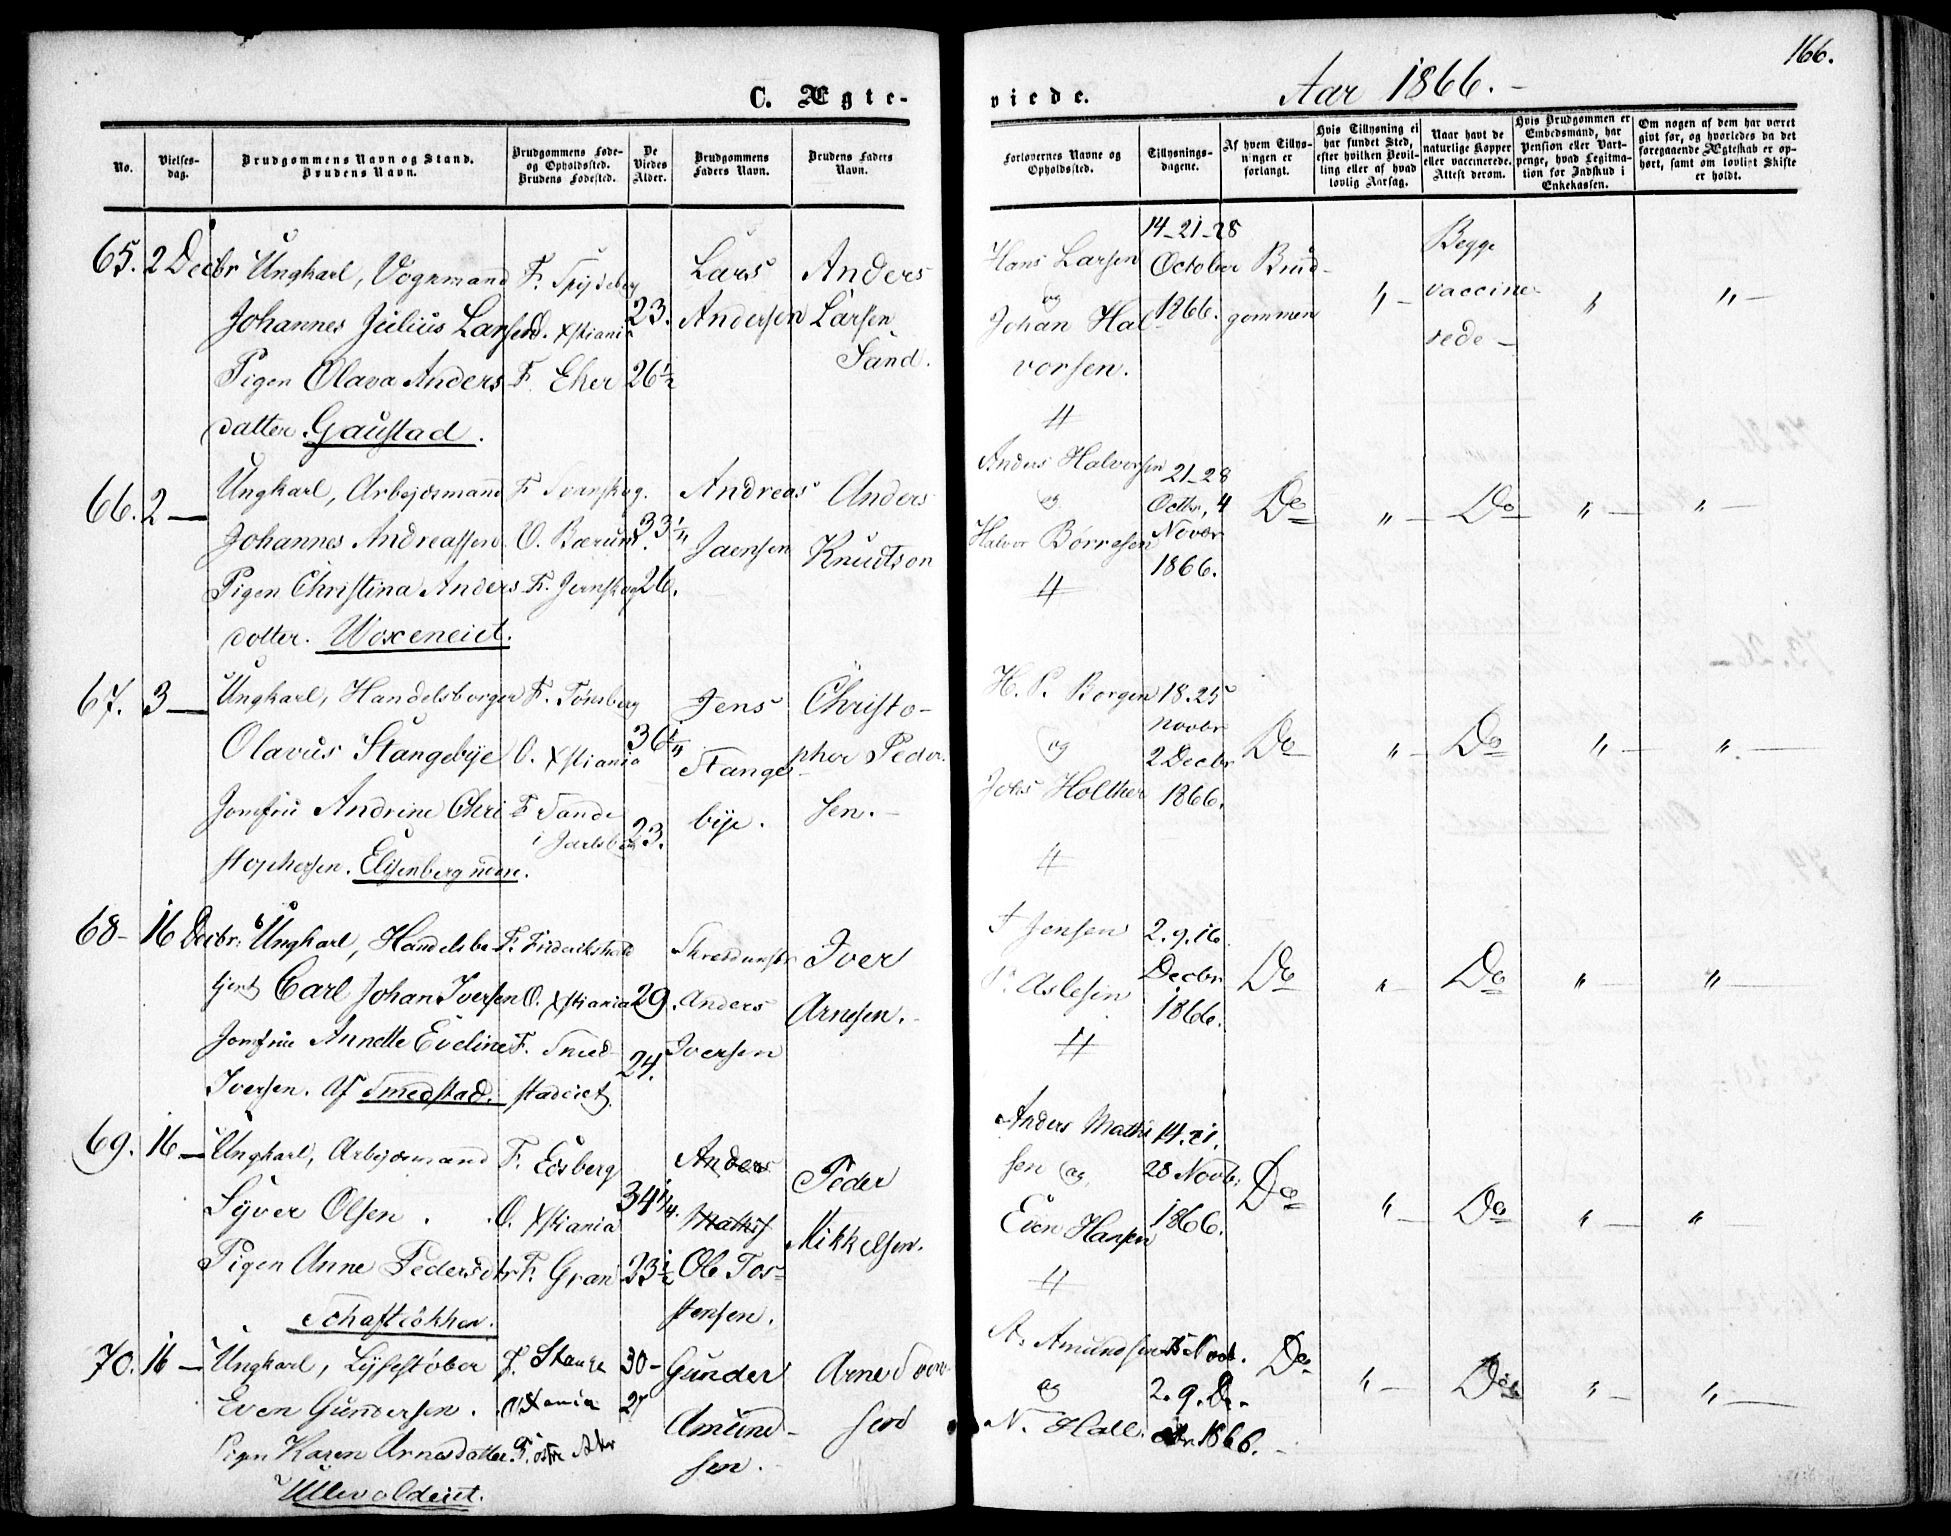 166.
C. Ægte-
viede.
Aar 1866.-
No.
Vielses-
dag.
Brudgommens Navn og Stand.
Brudens Navn.
Brudgommens Føde-
og Opholdssted.
Brudens Fødested.
De
Viedes
Alder.
Brudgommens
Faders Navn.
Brudens Faders
Navn.
Forlovernes Navne og
Opholdssted.
Tillysnings-
dagene.
Af hvem Tillys-
ningen er
forlangt.
Hvis Tillysning ei
har fundet Sted,
efter hvilken Bevil-
ling eller af hvad
lovlig Aarsag.
Naar havt de
naturlige Kopper
eller vaccinerede.
Attest derom.
Hvis Brudgommen er
Embedsmand, har
Pension eller Vart-
penge, hvad Legitima-
tion for Indskud i
Enkekassen.
Om nogen af dem har været
gift før, og hvorledes da det
foregaaende Ægteskab er op-
hørt, samt om lovligt Skifte
er holdt.
65. 2 Decbr
Ungkarl, Vognmand
Johannes Julius Larsen
Pigen Olava Anders
datter. Gaustad.
F. Spydeberg
O. Xstiania
F. Eker
23.
26½
Lars
Andersen
Anders
Larsen
Sand.
Hans Larsen
og
Johan Hal-
vorsen.
14-21-28
October
1866.
Brud-
gommen
" -
Begge
vaccine-
rede -
"
" -
66. 2 —
Ungkarl, Arbejdsmand
Johannes Andreassen
Pigen Christina Anders
dotter. Woxeneiet.
F. Svanskog.
O. Bærum.
F. Jernskog
33¼
26.
Andreas
Jaensen
Anders
Knudtson
Anders Halvorsen
og
Halvor Børresen
21-28
Octbr, 4
Novbr
1866.
Do
" -
Do
" -
" -
67. 3 —
Ungkarl, Handelsborger
Olavus Stangebye
Jomfru Andrine Chri
stophersen. Elisenberg nedre.
F. Tønsberg
O. Xstiania
F. Sande
i Jarlsberg
36¼
23.
Jens
Stange-
bye.
Christo-
pher Peder-
sen. -
H. P. Borgen
og
Johs Holther
18. 25
Novbr
2 Decbr
1866.
Do
" -
Do
" -
" -
68- 16 Decbr:
Ungkarl, Handelsbe
tjent Carl Johan Iversen
Jomfru Annette Eveline
Iversen. Af Smedstad.
F. Frederikshald
O. Xstiania
F. Smed-
stadeiet.
29.
24.
Anders
Iversen
Iver
Arnesen. -
Jensen
Aslesen
2. 9. 16.
Decbr
1866.
Do
" -
Do
" -
" -
69. 16 —
Ungkarl, Arbejdsmand
Syver Olsen.
Pigen Anne Pedersdtr
Schaftløkken.
F. Edsberg
O. Xstiania
F. Gran
34¼.
23½
Anders
Mathis
Ole Tos-
tensen.
Peder
Mikkelsen.
Anders Mathi
sen og
Even Hansen
14. 21.
28 Novb:
1866.
Do
" -
Do
" -
"
70. 16 —
Ungkarl, Lysestøber
Even Gundersen.
Pigen Karen Arnesdatter.
Ullevoldeiet.
F. Stange
O. Xtania
F. østre Aker
30-
27
Gunder
Amund-
sen.
Arne Sven
send
A. Amundsen
og
N. Hall.
2. 9. De-
cbr. 1866.
Do
" -
Do
" -
" -